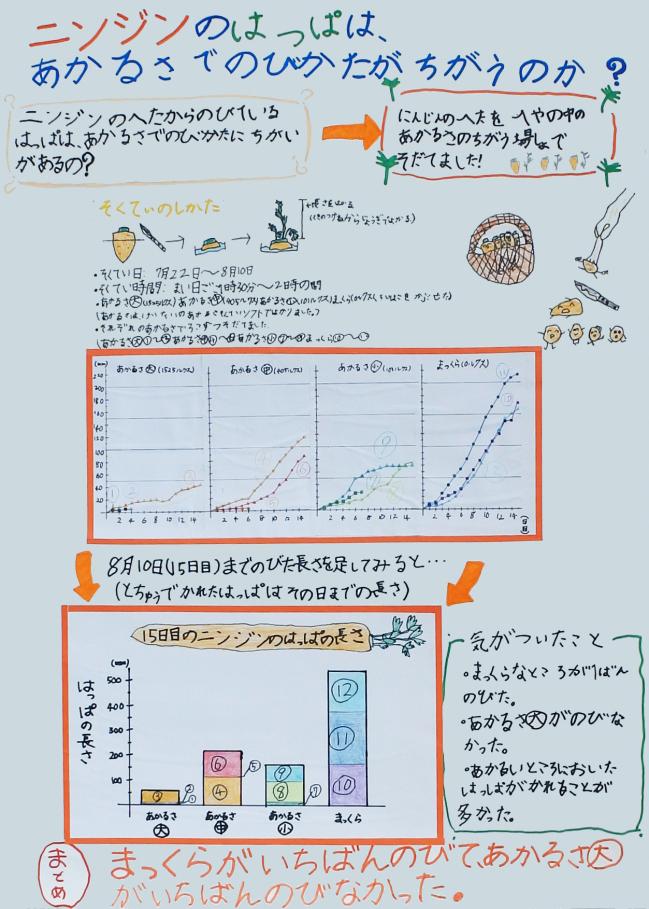 ニンジンのはっぱは、
あかるさでのびかたがちがうのか?
ニンジンのへたからのびている
はっぱは、あかるさでのびかたにちがい
があるの?
にんじんのへたをへやの中の
あかるさのちがう場しょで
そだてました!
そくていのしかた
・そくてい日:7月22日〜8月10日
・そくてい時間:まい日ごご1時30分〜2時の間
・それぞれのあかるさで3こずつそだてました
(mm)
220
200
180
160
140
120
100
80
60
40
20
あかるさ大(1525ルクス)
あかるさ中(407ルクス)
あかるさ小(101ルクス)
まっくら(0ルクス)
2 4 6 8 10 12 14
2 4 6 8 10 12 14
2 4 6 8 10 12 14
2 4 6 8 10 12 14
(日目)
8月10日(15日目)までのびた長さを足してみると…
(とちゅうでかれたはっぱはその日までの長さ)
15日目のニンジンのはっぱの長さ
(mm)
500
400
300
200
100
はっぱの長さ
③
②
①
⑥
⑤
④
⑨
⑧
⑦
⑫
⑪
⑩
あかるさ大
あかるさ中
あかるさ小
まっくら
気がついたこと
・まっくらなところが1ばん
のびた。
・あかるさ大がのびな
かった。
・あかるいところにおいた
はっぱがかれることが
多かった。
まとめ
まっくらがいちばんのびて、あかるさ大
がいちばんのびなかった。